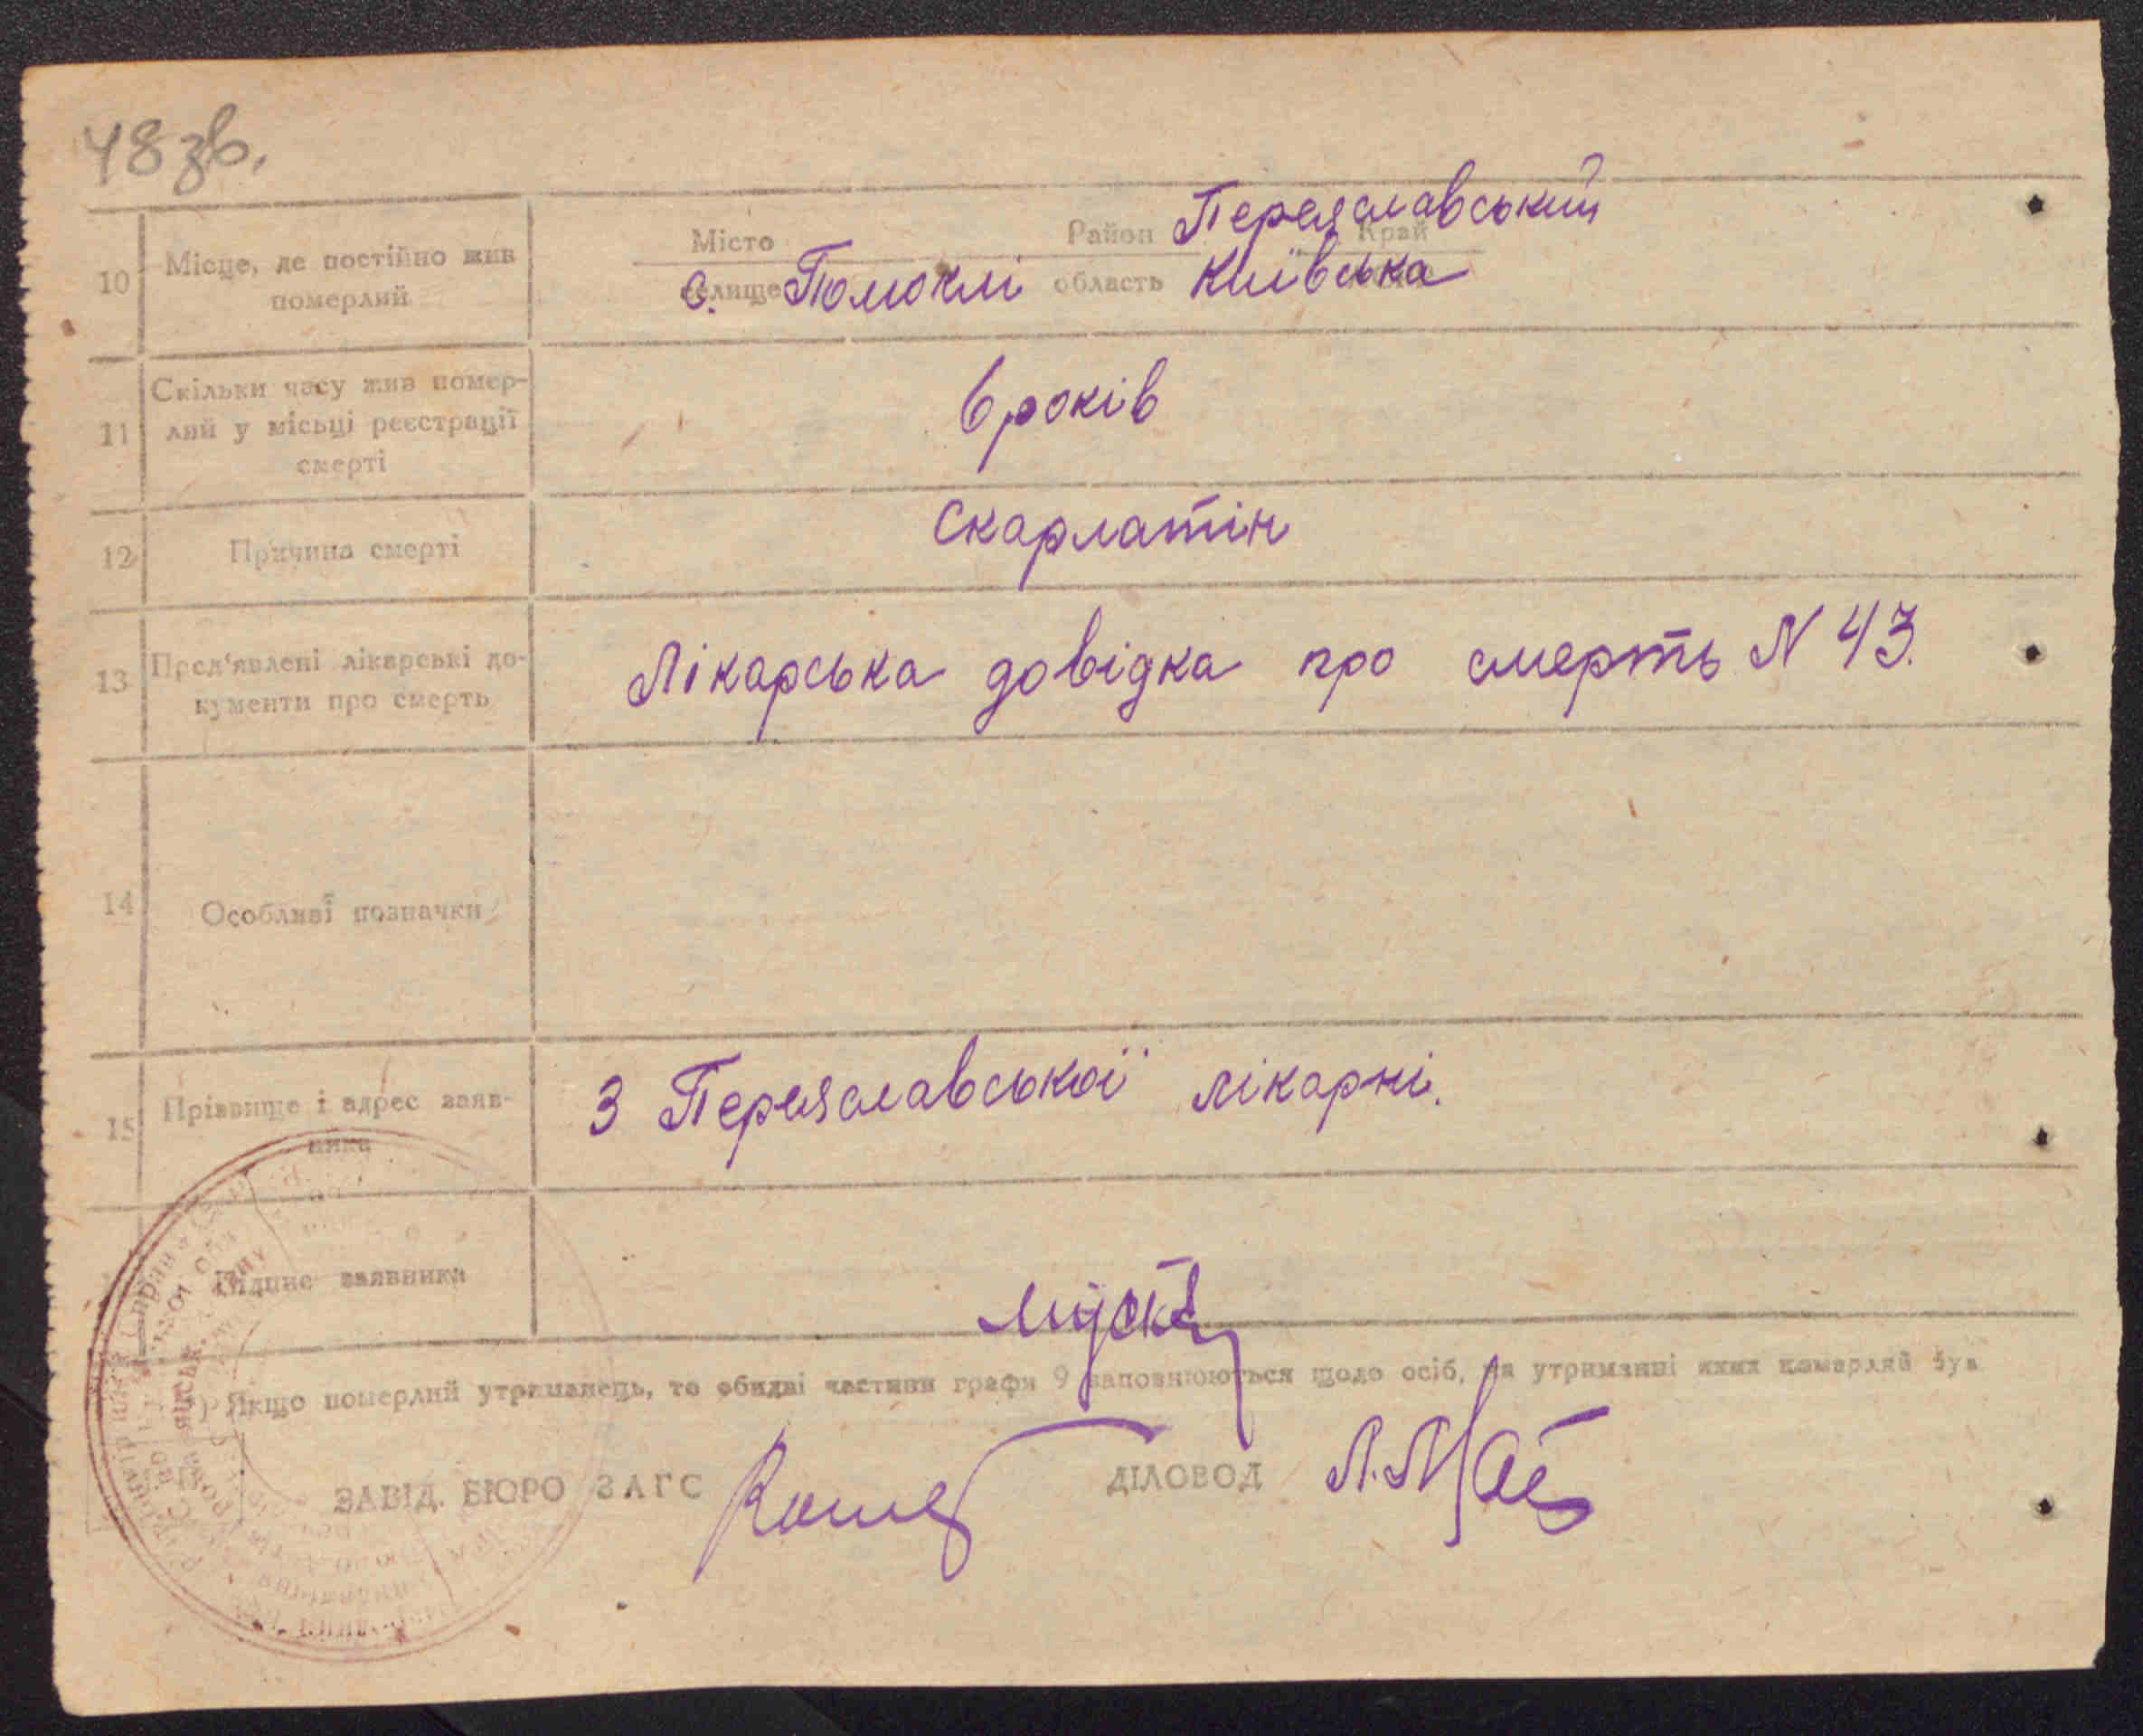 48 зв.
10 Місце, де постійно жив померлий
Місто Район Переяславський Край
селище с. Помоклі область Київська
11 Скільки часу жив помер-
лий у місьці реєстрації
смерті
6 років
12 Причина смерті
Скарлатін
13 Пред'явлені лікарські до-
кументи про смерть
Лікарська довідка про смерть N 43.
14 Особливі позначки
15 Прізвище і адрес заяв-
ника
З Переяславської лікарні.
Підпис заявника
*) Якщо померлий утриманець, то обидві частини графи 9 заповнюються щодо осіб, на утриманні яких померлий був
ЗАВІД. БЮРО ЗАГС
ДІЛОВОД